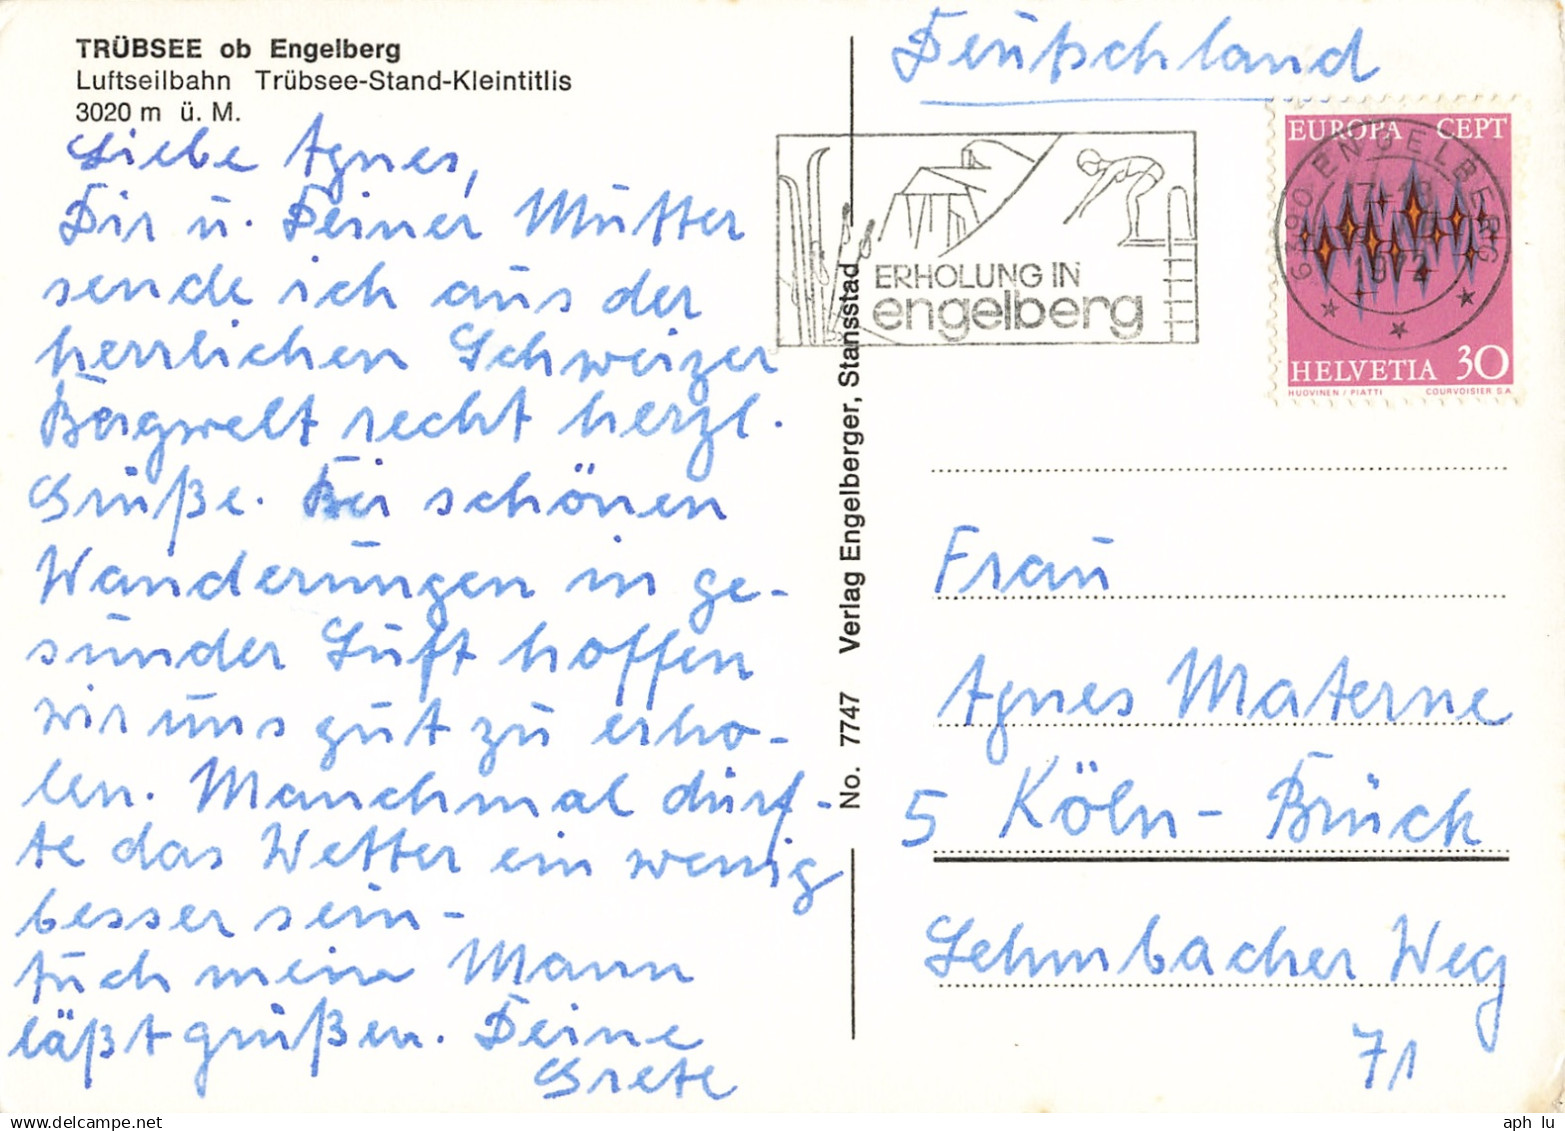 TRÜBSEE ob Engelberg
Luftseilbahn Trübsee-Stand-Kleintitlis
3020 m ü. M.
Liebe Agnes,
Dir u. Deiner Mutter
sende ich aus der
herrlichen Schweizer
Bergwelt recht herzl.
Grüße. Bei schönen
Wanderungen in ge-
sunder Luft hoffen
wir uns gut zu erho-
len. Manchmal dürf-
te das Wetter ein wenig
besser sein-
Auch mein Mann
läßt grüßen. Deine
Grete
No. 7747 Verlag Engelberger, Stansstad
Deutschland
ERHOLUNG IN
engelberg
EUROPA CEPT
6390 ENGELBERG
1972
HELVETIA 30
HUOVINEN / PIATTI COURVOISIER S.A.
Frau
Agnes Materne
5 Köln-Brück
Lehmbacher Weg
71
aph lu